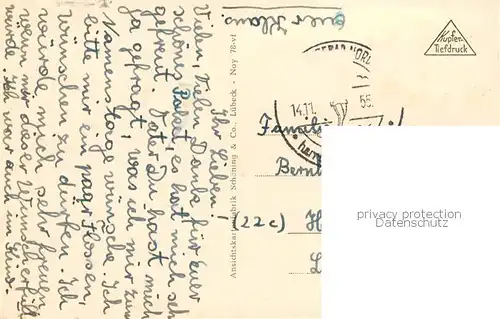 Ihr Lieben!
Vielen, vielen Dank für euer
schönes Paket, es hat mich sehr
gefreut. Vater Du hast mich
ja gefragt, was ich mir zum
Namenstage wünsche. Ich
bitte mir ein paar Flossen
wünschen zu dürfen. Ich
würde mich sehr freuen
wenn mir dieser Wunsch erfüllt
würde. Ich war auch im
euer Klaus.
Ansichtskartenfabrik Schöning & Co., Lübeck · Noy 78-vl
Kupfer-
Tiefdruck
NORD
14.11. 55
Famili
Bern
(22c) H
L
privacy protection
Datenschutz